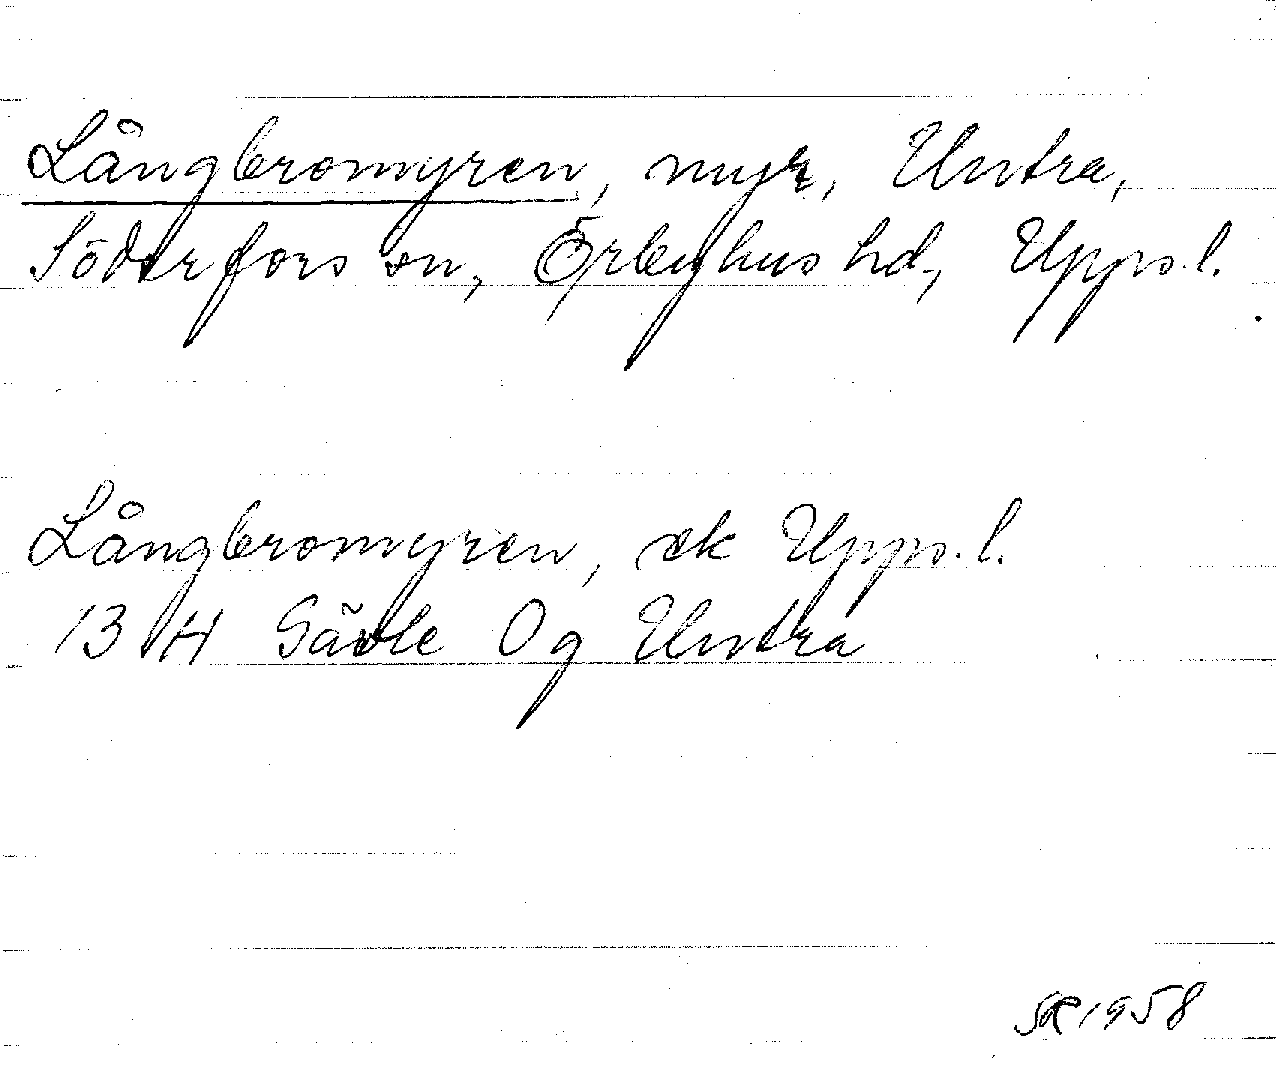 Långbromyren, myr, Untra,
Söderfors sn, Örbyhus hd, Upps.l.
Långbromyren, ek Upps.l.
13 H Gävle Og Untra
SR 1958